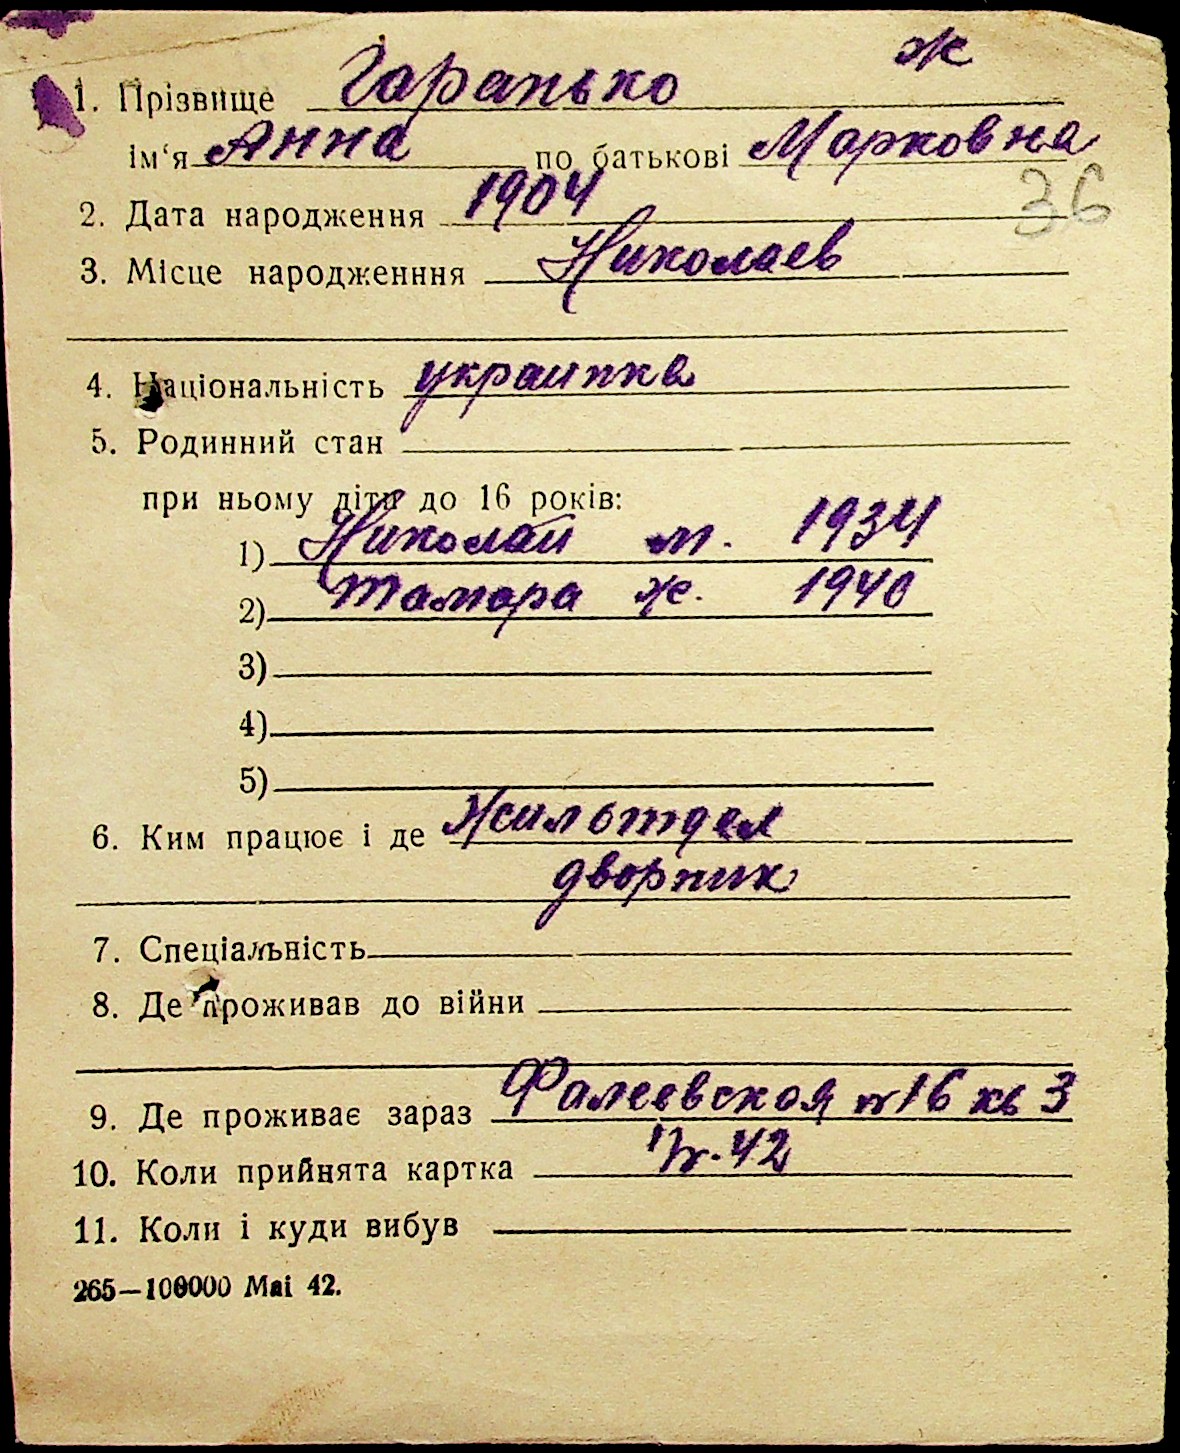 ж
1. Прізвище Гаранько
ім‘я Анна по батькові Марковна
2. Дата народження 1904
36
3. Місце народженння Николаев
4. Національність украинка
5. Родинний стан
при ньому діти до 16 років:
1) Николай м. 1934
2) Тамара ж. 1940
3)
4)
5)
6. Ким працює і де Жилотдел
дворник
7. Спеціальність
8. Де проживав до війни
9. Де проживає зараз Фалеевская n 16 кв 3
10. Коли прийнята картка 42
11. Коли і куди вибув
265—100000 Mai 42.